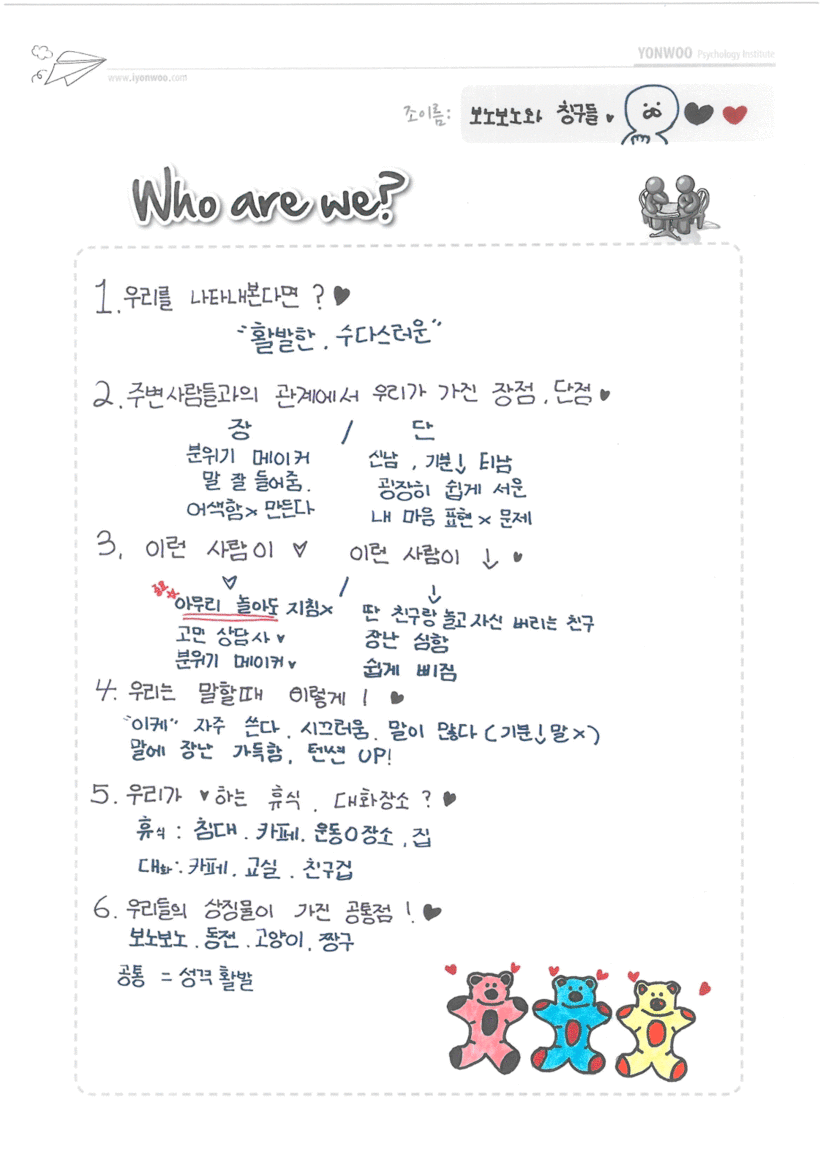 YONWOO Psychology Institute
www.iyonwoo.com
조이름: 보노보노와 친구들
Who are we?
1. 우리를 나타내본다면 ?
"활발한, 수다스러운"
2. 주변사람들과의 관계에서 우리가 가진 장점, 단점
장 / 단
분위기 메이커
말 잘 들어줌.
어색함x 만든다
신남, 기분↓ 티남
굉장히 쉽게 서운
내 마음 표현 x 문제
3. 이런 사람이 ♡ 이런 사람이 ↓
♡ / ↓
아무리 놀아도 지침x
고민 상담사
분위기 메이커
딴 친구랑 놀고 자신 버리는 친구
장난 심함
쉽게 삐짐
4. 우리는 말할때 이렇게 !
"이케" 자주 쓴다, 시끄러움, 말이 많다 (기분↓말x)
말에 장난 가득함, 텐션 UP!
5. 우리가 ♥하는 휴식, 대화장소 ?
휴식 : 침대, 카페, 운동O장소, 집
대화 : 카페, 교실, 친구집
6. 우리들의 상징물이 가진 공통점 !
보노보노, 동전, 고양이, 짱구
공통 = 성격 활발